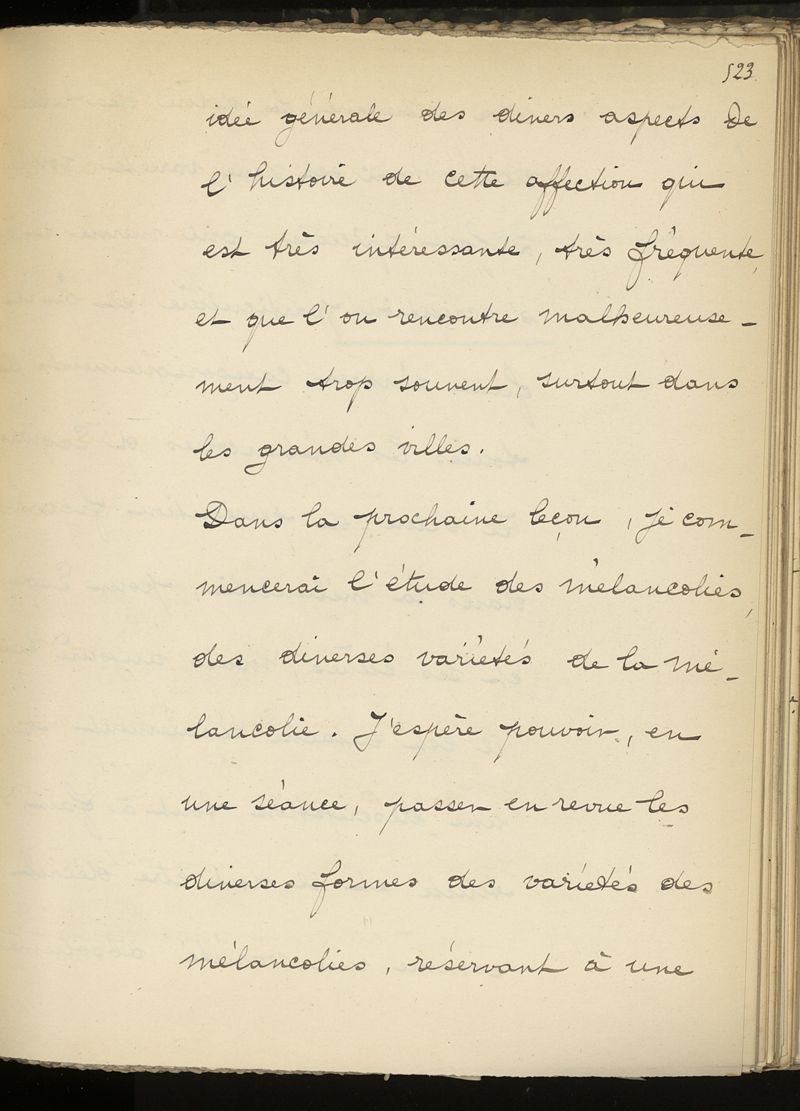 523
idée générale des divers aspects de
l'histoire de cette affection qui
est très intéressante, très fréquente,
et que l'on rencontre malheureuse-
ment trop souvent, surtout dans
les grandes villes.
Dans la prochaine leçon, je com-
mencerai l'étude des mélancolies,
des diverses variétés de la mé-
lancolie. J'espère pouvoir, en
une séance, passer en revue les
diverses formes des variétés des
mélancolies, réservant à une